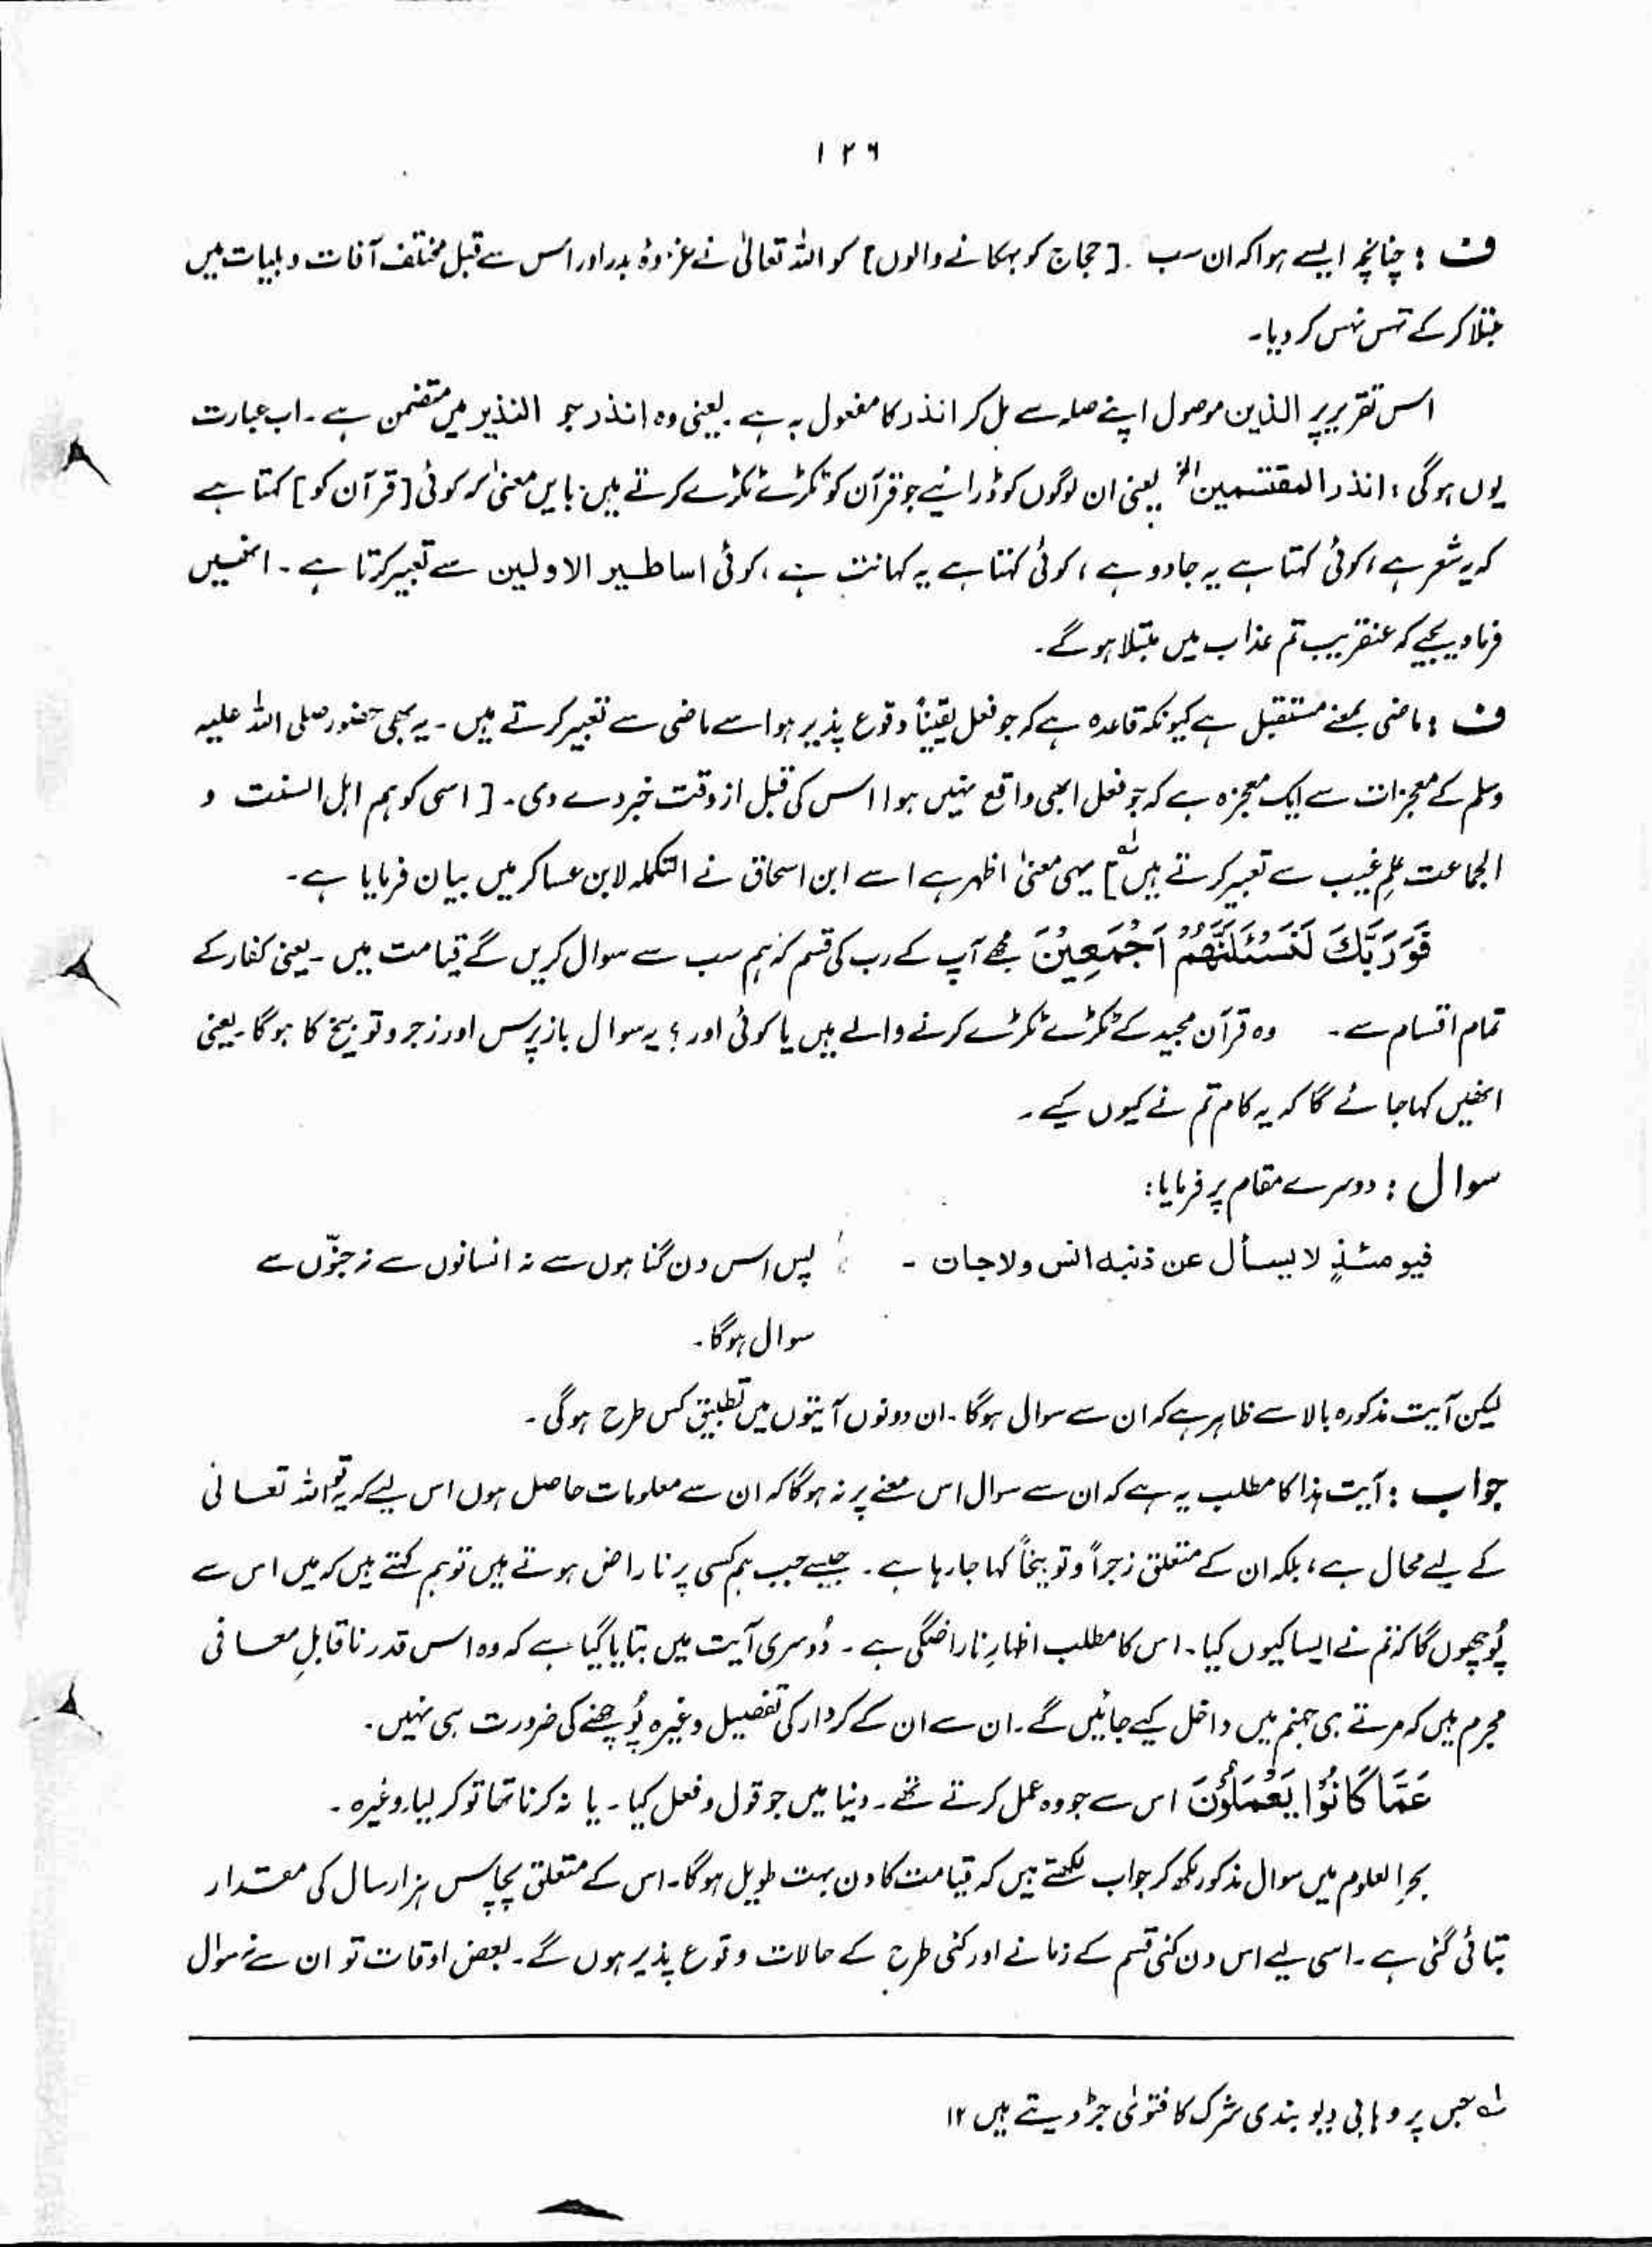 ۱۲۶
ف : چنانچہ ایسے ہوا کہ ان سب ۔ [ حجاج کو بہکانے والوں ] کو اللہ تعالیٰ نے غزوۂ بدر اور اس سے قبل مختلف آفات و بلیات میں
مبتلا کر کے تہس نہس کر دیا۔
اس تقریر پر الذین موصول اپنے صلہ سے مل کر انذر کا مفعول بہ ہے ۔ یعنی وہ انذر جو النذیر میں متضمن ہے ۔ اب عبارت
یوں ہوگی : انذر المقتسمین الخ یعنی ان لوگوں کو ڈرائیے جو قرآن کو ٹکڑے ٹکڑے کرتے ہیں بایں معنیٰ کہ کوئی [ قرآن کو ] کہتا ہے
کہ یہ شعر ہے ، کوئی کہتا ہے یہ جادو ہے ، کوئی کہتا ہے یہ کہانت ہے ، کوئی اساطیر الاولین سے تعبیر کرتا ہے ۔ انھیں
فرما دیجیے کہ عنقریب تم عذاب میں مبتلا ہوگے۔
ف : ماضی بمعنے مستقبل ہے کیونکہ قاعدہ ہے کہ جو فعل یقیناً وقوع پذیر ہو اسے ماضی سے تعبیر کرتے ہیں ۔ یہ بھی حضور صلی اللہ علیہ
وسلم کے معجزات سے ایک معجزہ ہے کہ جو فعل ابھی واقع نہیں ہوا اس کی قبل از وقت خبر دے دی ۔ [ اسی کو ہم اہل السنت و
الجماعت علمِ غیب سے تعبیر کرتے ہیں لہ ] یہی معنیٰ اظہر ہے اسے ابن اسحاق نے التکملہ لابن عساکر میں بیان فرمایا ہے۔
فَوَرَبِّكَ لَنَسْئَلَنَّهُمْ اَجْمَعِيْنَ مجھے آپ کے رب کی قسم کہ ہم سب سے سوال کریں گے قیامت میں ۔ یعنی کفار کے
تمام اقسام سے ۔ وہ قرآن مجید کے ٹکڑے ٹکڑے کرنے والے ہیں یا کوئی اور ؛ یہ سوال باز پرس اور زجر و توبیخ کا ہوگا ۔ یعنی
انھیں کہا جائے گا کہ یہ کام تم نے کیوں کیے ۔
سوال : دوسرے مقام پر فرمایا :
فیومئذٍ لا یسأل عن ذنبہ انس ولا جان ۔ پس اس دن گناہوں سے نہ انسانوں سے نہ جنّوں سے
سوال ہوگا ۔
لیکن آیت مذکورہ بالا سے ظاہر ہے کہ ان سے سوال ہوگا ۔ ان دونوں آیتوں میں تطبیق کس طرح ہوگی ۔
جواب : آیت ہذا کا مطلب یہ ہے کہ ان سے سوال اس معنے پر نہ ہوگا کہ ان سے معلومات حاصل ہوں اس لیے کہ یہ تو اللہ تعالیٰ
کے لیے محال ہے ، بلکہ ان کے متعلق زجراً و توبیخاً کہا جا رہا ہے ۔ جیسے جب ہم کسی پر ناراض ہوتے ہیں تو ہم کہتے ہیں کہ میں اس سے
پُوچھوں گا کہ تم نے ایسا کیوں کیا ۔ اس کا مطلب اظہارِ ناراضگی ہے ۔ دُوسری آیت میں بتایا گیا ہے کہ وہ اس قدر ناقابلِ معافی
مجرم ہیں کہ مرتے ہی جہنم میں داخل کیے جائیں گے ۔ ان سے ان کے کردار کی تفصیل وغیرہ پُوچھنے کی ضرورت ہی نہیں ۔
عَمَّا كَانُوْا يَعْمَلُوْنَ اس سے جو وہ عمل کرتے تھے ۔ دنیا میں جو قول و فعل کیا ۔ یا نہ کرنا تھا تو کر لیا وغیرہ ۔
بحر العلوم میں سوال مذکور لکھ کر جواب لکھتے ہیں کہ قیامت کا دن بہت طویل ہوگا ۔ اس کے متعلق پچاس ہزار سال کی مقدار
بتائی گئی ہے ۔ اسی لیے اس دن کئی قسم کے زمانے اور کئی طرح کے حالات وقوع پذیر ہوں گے ۔ بعض اوقات تو ان سے نہ سوال
لہ جس پر وہابی دیوبندی شرک کا فتویٰ جڑ دیتے ہیں ۱۲